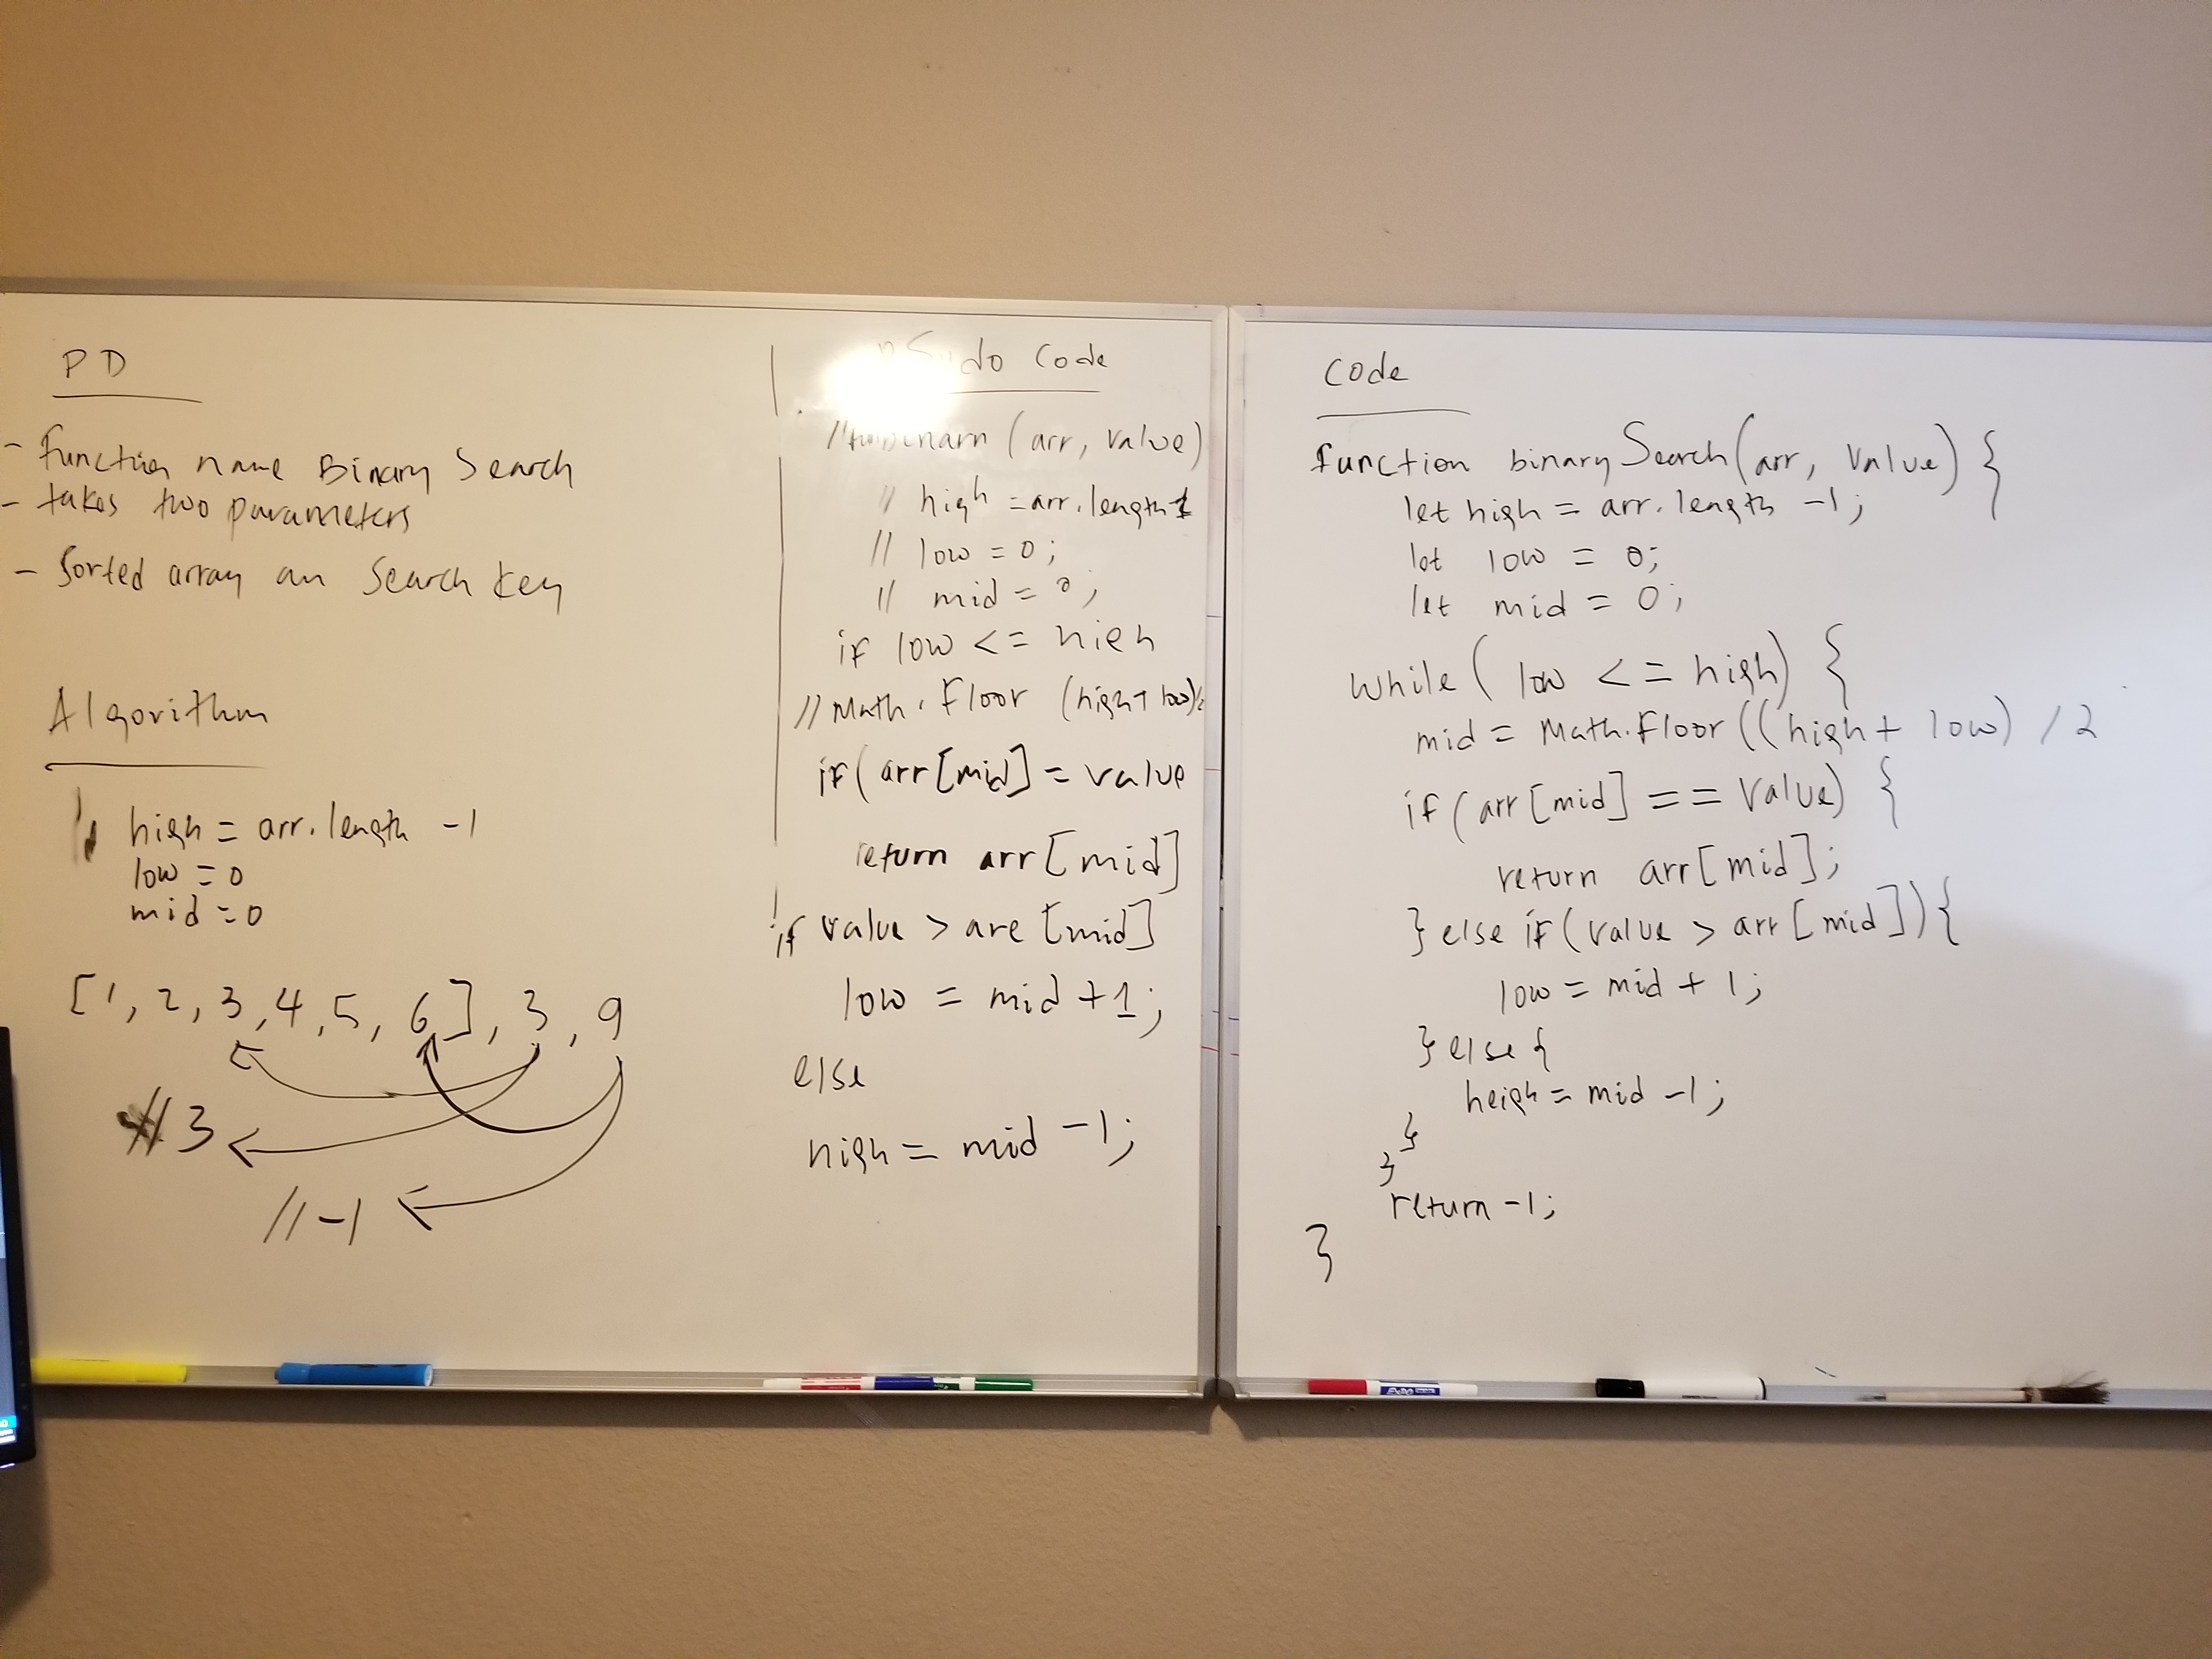 PD
- Function name Binary Search
- takes two parameters
- Sorted array an Search key
Algorithm
high = arr.length -1
low = 0
mid = 0
[1, 2, 3, 4, 5, 6], 3, 9
// 3
// -1
code
// (arr, value)
// high = arr.length
// low = 0;
// mid = 0;
if low <= high
// Math.Floor (high + low)
if (arr[mid] = value
return arr[mid]
if value > are [mid]
low = mid + 1;
else
high = mid -1;
code
function binarySearch(arr, value) {
let high = arr.length -1;
let low = 0;
let mid = 0;
while (low <= high) {
mid = Math.Floor((high + low) / 2
if (arr[mid] == value) {
return arr[mid];
} else if (value > arr[mid]) {
low = mid + 1;
} else {
heigh = mid -1;
}
}
return -1;
}